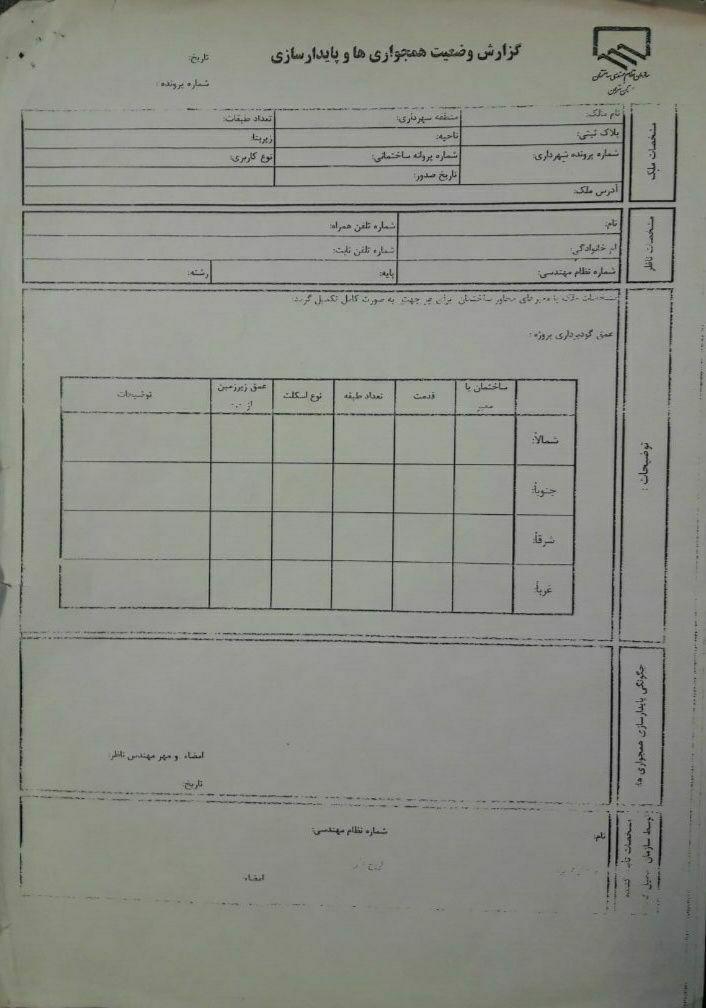 سازمان نظام مهندسی ساختمان
استان تهران
گزارش وضعیت همجواری ها و پایدارسازی
تاریخ:
شماره پرونده :
مشخصات ملک
نام مالک:
منطقه شهرداری:
تعداد طبقات:
پلاک ثبتی:
ناحیه:
زیربنا:
شماره پرونده شهرداری:
شماره پروانه ساختمانی:
نوع کاربری:
تاریخ صدور:
آدرس ملک:
مشخصات ناظر
نام:
شماره تلفن همراه:
نام خانوادگی:
شماره تلفن ثابت:
شماره نظام مهندسی:
پایه:
رشته:
توضیحات :
مشخصات ملک یا معبرهای مجاور ساختمان برای هر جهت به صورت کامل تکمیل گردد:
عمق گودبرداری پروژه :
ساختمان یا معبر
قدمت
تعداد طبقه
نوع اسکلت
عمق زیرزمین از
توضیحات
شمالاً:
جنوباً:
شرقاً:
غرباً:
چگونگی پایدارسازی همجواری ها:
امضاء و مهر مهندس ناظر:
تاریخ:
مشخصات
توسط سازمان
نام:
شماره نظام مهندسی:
امضاء: